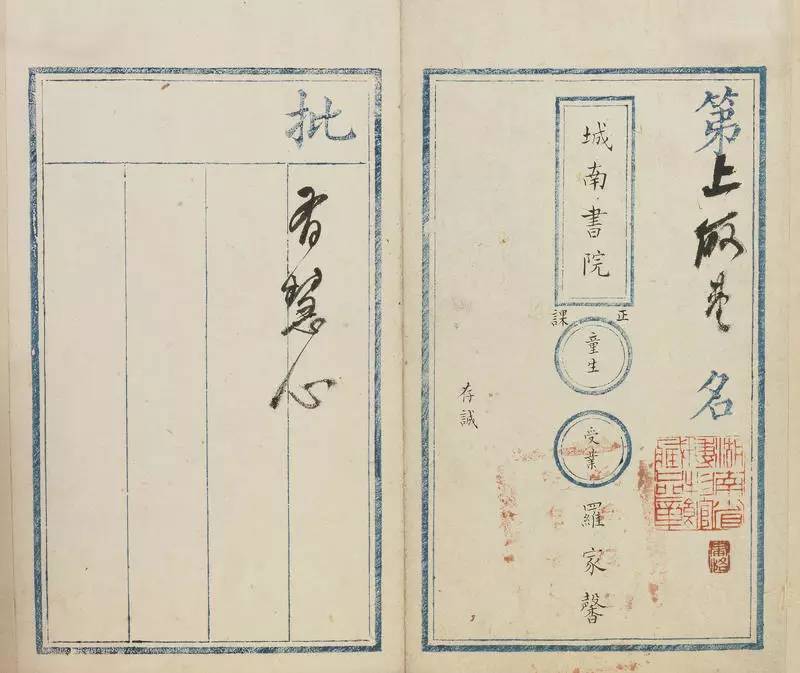 第上取壹名
城南書院
正課
童生
受業
羅家馨
存誠
湖南省
藏品章
批
有慧心